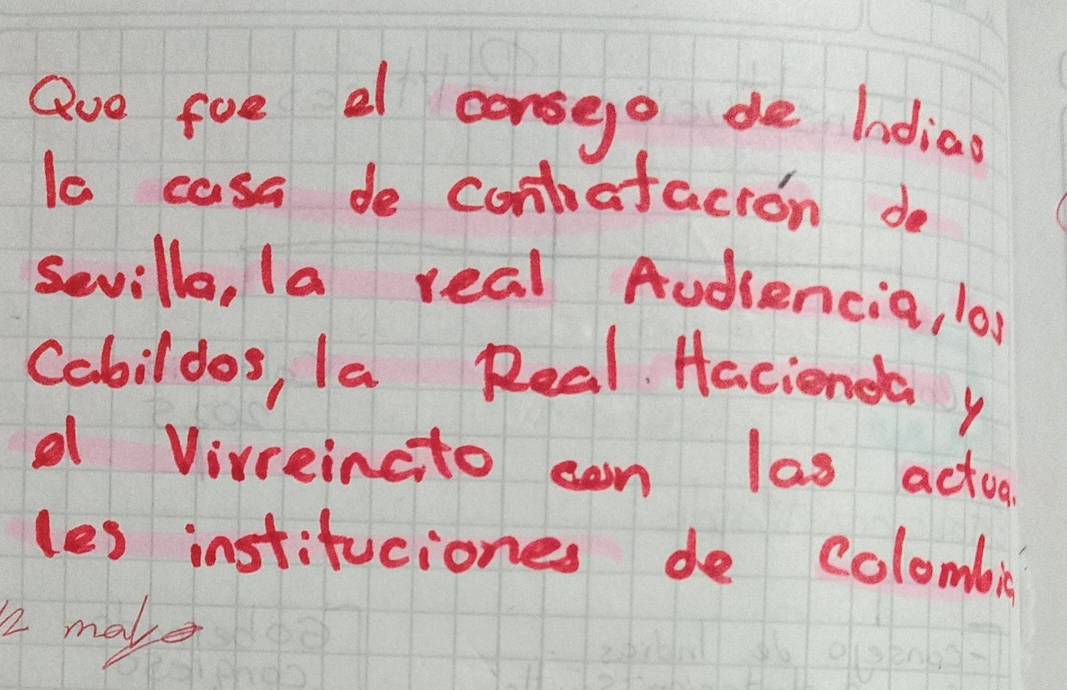 Que fue el consejo de Indias
la casa de contratación de
sevilla, la real Audiencia, los
Cabildos, la Real Hacienda y
el Virreinato con las actua.
les instituciones de colombia
12 mayo